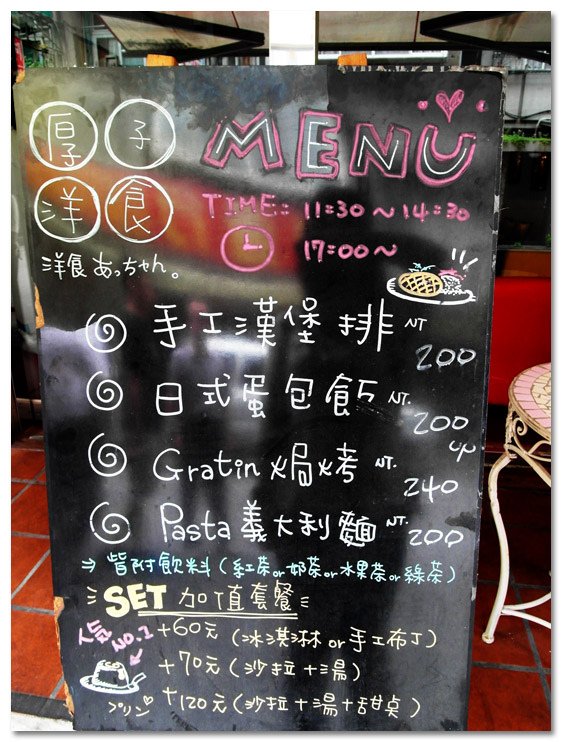 厚子
洋食
洋食 あっちゃん。
MENU
TIME: 11:30～14:30
17:00～
手工漢堡排 NT 200
日式蛋包飯 NT. 200 up
Gratin 焗烤 NT. 240
Pasta 義大利麵 NT. 200
⇒ 皆附飲料（紅茶or奶茶or水果茶or綠茶）
SET 加值套餐
人気 NO.1
+60元（冰淇淋 or 手工布丁）
+70元（沙拉＋湯）
プリン
+120元（沙拉＋湯＋甜桌）